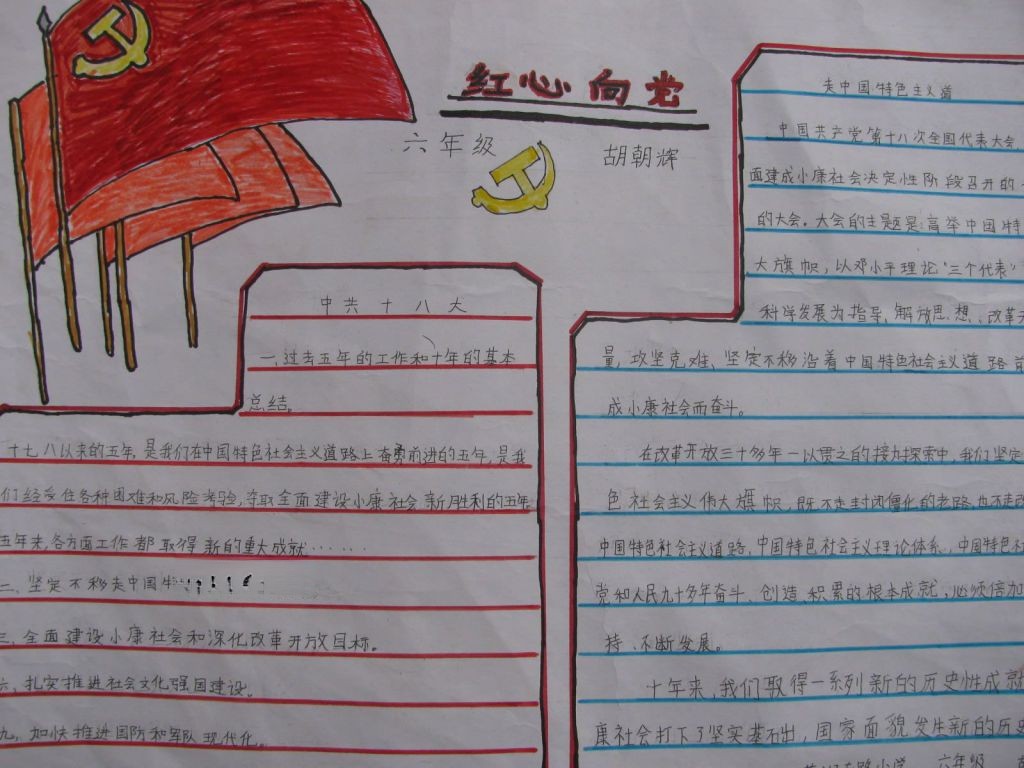 红心向党
六年级 胡朝辉
中共十八大
一、过去五年的工作和十年的基本
总结。
十七八以来的五年，是我们在中国特色社会主义道路上奋勇前进的五年，是我
们经受住各种困难和风险考验，夺取全面建设小康社会新胜利的五年
五年来，各方面工作都取得新的重大成就……
二、坚定不移走中国特
三、全面建设小康社会和深化改革开放目标。
六、扎实推进社会文化强国建设。
九、加快推进国防和军队现代化。
走中国特色主义道
中国共产党第十八次全国代表大会，
面建成小康社会决定性阶段召开的
的大会。大会的主题是：高举中国特
大旗帜，以邓小平理论“三个代表”
科学发展为指导、解放思想、改革
量，攻坚克难、坚定不移沿着中国特色社会主义道路前
成小康社会而奋斗。
在改革开放三十多年一以贯之的接力探索中，我们坚定
色社会主义伟大旗帜，既不走封闭僵化的老路，也不走改
中国特色社会主义道路，中国特色社会主义理论体系，中国特色社
党和人民九十多年奋斗、创造、积累的根本成就，必须倍加
持、不断发展。
十年来，我们取得一系列新的历史性成就
康社会打下了坚实基石出，国家面貌发生新的历史
路小学 六年级